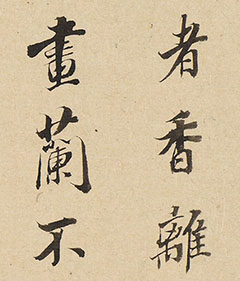 者香離
畫蘭不